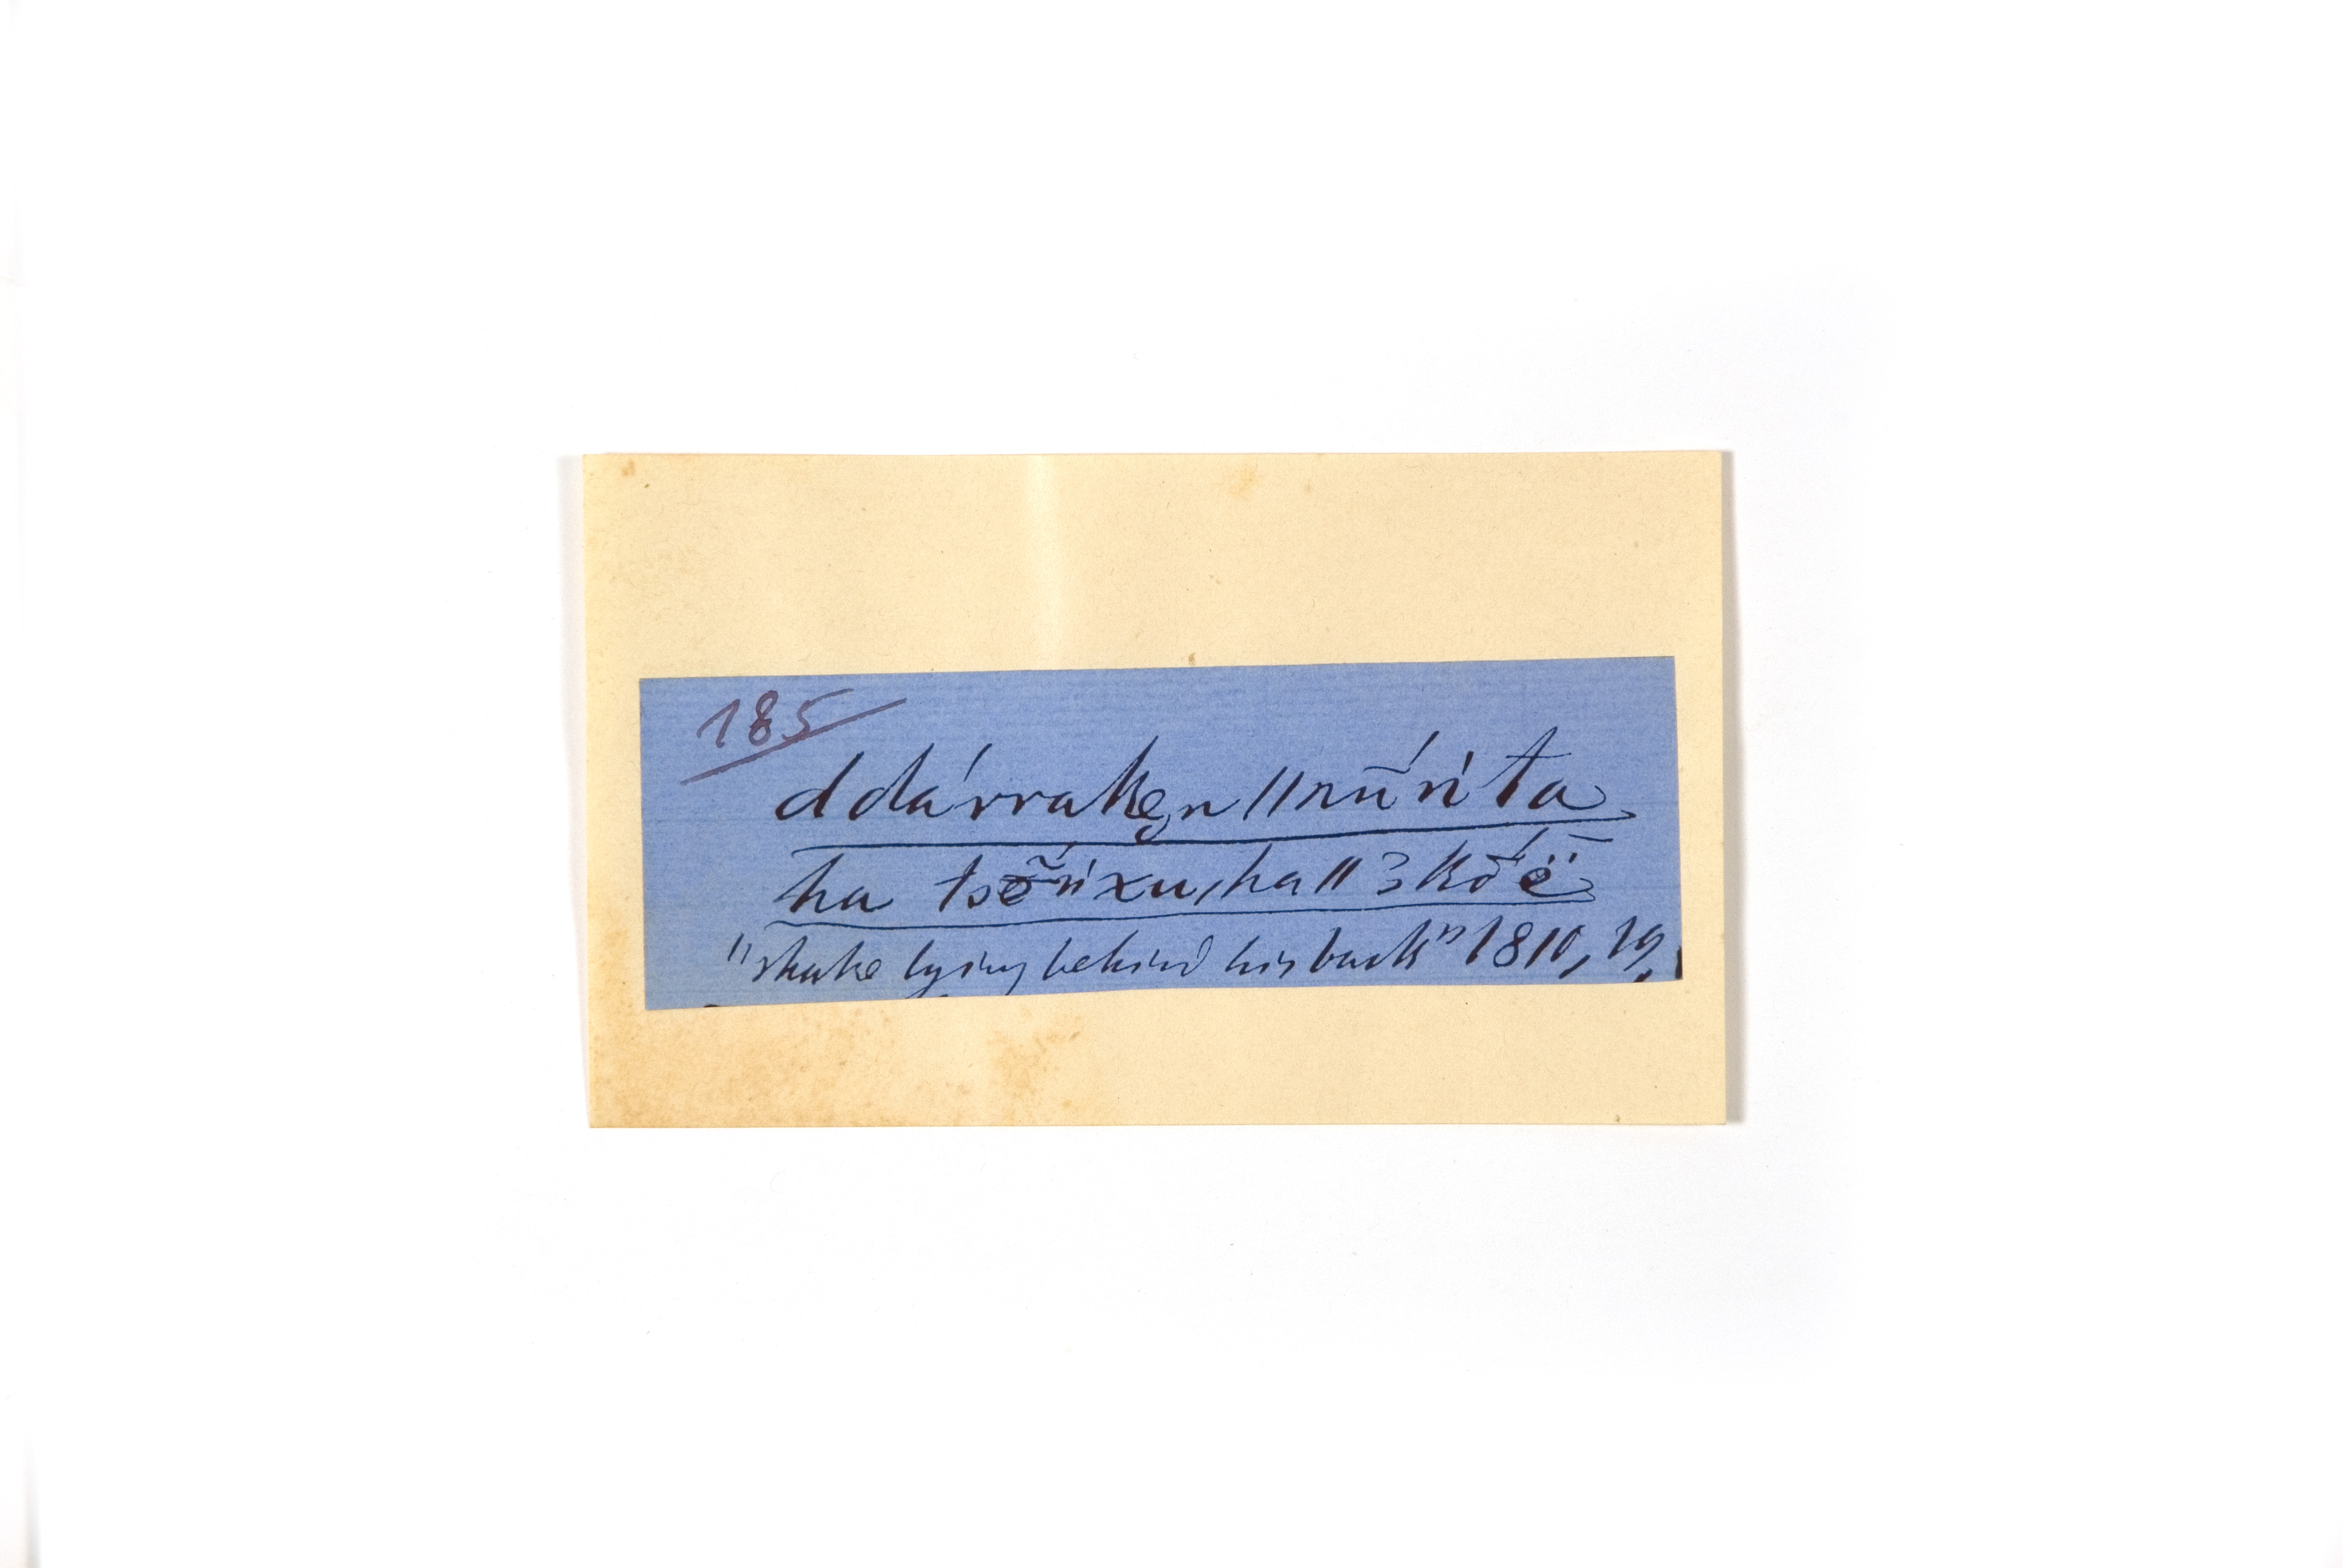 185
ddárraken //nū́ṅta
ha tsĕ̃ṅxu, ha // 3kṓë̄
"shake lying behind his back" 1810, 19,